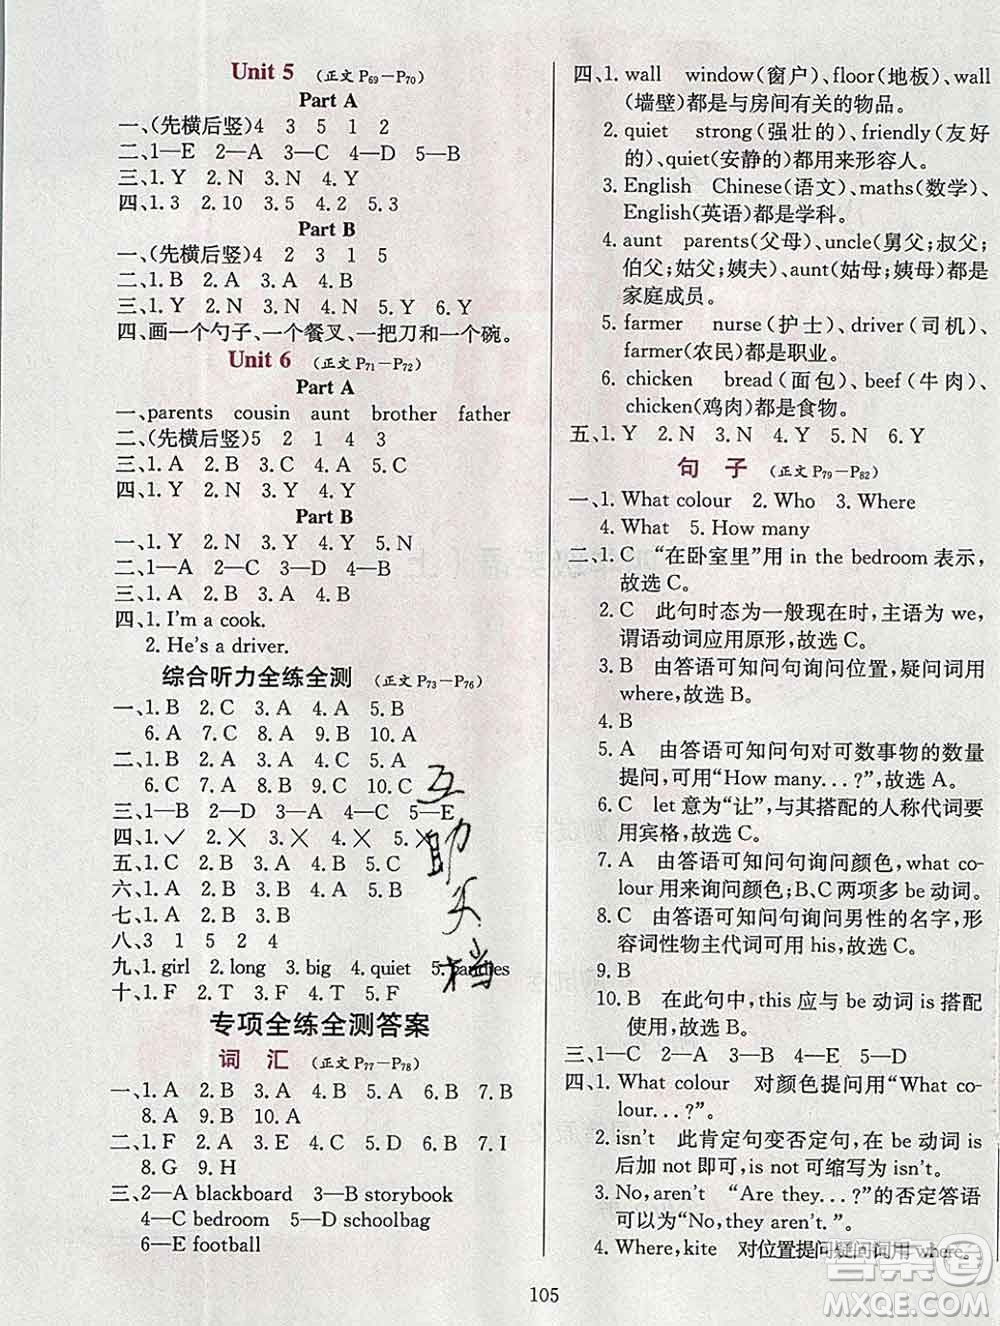 Unit 5 (正文 P69—P70)
Part A
一、(先横后竖)4 3 5 1 2
二、1—E 2—D 3—C 4—A 5—B
三、1. Y 2. N 3. N 4. Y
四、1. 3 2. 10 3. 5 4. 2 5. 3
Part B
一、(先横后竖)4 2 3 1 5
二、1. B 2. A 3. A 4. B
三、1. Y 2. N 3. Y 4. N 5. Y 6. Y
四、画一个勺子、一个餐叉、一把刀和一个碗。
Unit 6 (正文 P71—P72)
Part A
一、parents cousin aunt brother father
二、(先横后竖)5 2 1 4 3
三、1. A 2. B 3. B 4. A 5. A
四、1. Y 2. N 3. Y 4. Y
Part B
一、1. Y 2. N 3. Y 4. Y 5. N
二、1. B 2. A 3. C 4. A 5. C
三、1. B 2. A 3. B 4. A 5. B
四、1. I'm a cook.
2. He's a driver.
综合听力全练全测 (正文 P73—P76)
一、1. B 2. C 3. A 4. A 5. B
6. A 7. C 8. A 9. B 10. A
二、1. B 2. B 3. A 4. A 5. A
6. C 7. C 8. B 9. B 10. C
三、1—B 2—D 3—A 4—C 5—E
四、1. ✓ 2. ✗ 3. ✗ 4. ✗ 5. ✗
五、1. C 2. B 3. A 4. B 5. B
六、1. A 2. B 3. A 4. B 5. A
七、1. A 2. B 3. A 4. A 5. B
八、3 1 5 2 4
九、1. girl 2. long 3. big 4. quiet
十、1. F 2. T 3. F 4. T 5. F
互助文档
专项全练全测答案
词 汇 (正文 P77—P78)
一、1. A 2. A 3. A 4. A 5. B 6. B 7. B
8. A 9. B 10. A
二、1. F 2. A 3. C 4. D 5. B 6. E 7. I
8. G 9. H
三、2—A blackboard 3—B storybook
4—C bedroom 5—D schoolbag
6—E football
四、1. wall window(窗户), floor(地板), wall
(墙壁)都是与房间有关的物品。
2. quiet strong(强壮的), friendly(友好
的), quiet(安静的)都用来形容人。
3. English Chinese(语文), maths(数学),
English(英语)都是学科。
4. aunt parents(父母), uncle(舅父;叔父;
伯父;姑父;姨夫), aunt(姑母;姨母)都是
家庭成员。
5. farmer nurse(护士), driver(司机),
farmer(农民)都是职业。
6. chicken bread(面包), beef(牛肉),
chicken(鸡肉)都是食物。
五、1. Y 2. N 3. N 4. Y 5. N 6. Y
句 子 (正文 P79—P82)
一、1. What colour 2. Who 3. Where
4. What 5. How many
二、1. C “在卧室里”用 in the bedroom 表示,
故选 C。
2. C 此句时态为一般现在时,主语为 we,
谓语动词应用原形,故选 C。
3. B 由答语可知问句询问位置,疑问词用
where,故选 B。
4. B
5. A 由答语可知问句对可数事物的数量
提问,可用“How many. . . ?”,故选 A。
6. C let 意为“让”,与其搭配的人称代词要
用宾格,故选 C。
7. A 由答语可知问句询问颜色, what co-
lour 用来询问颜色;B、C 两项多 be 动词。
8. C 由答语可知问句询问男性的名字,形
容词性物主代词可用 his,故选 C。
9. B
10. B 在此句中,this 应与 be 动词 is 搭配
使用,故选 B。
三、1—C 2—A 3—E 4—B 5—D
四、1. What colour 对颜色提问用“What co-
lour. . . ?”。
2. isn't 此肯定句变否定句,在 be 动词 is
后加 not 即可,is not 可缩写为 isn't。
3. No, aren't “Are they. . . ?”的否定答语
可以为“No, they aren't.”。
4. Where, kite 对位置提问疑问词用 where。
105
答案圈
MXQE.COM